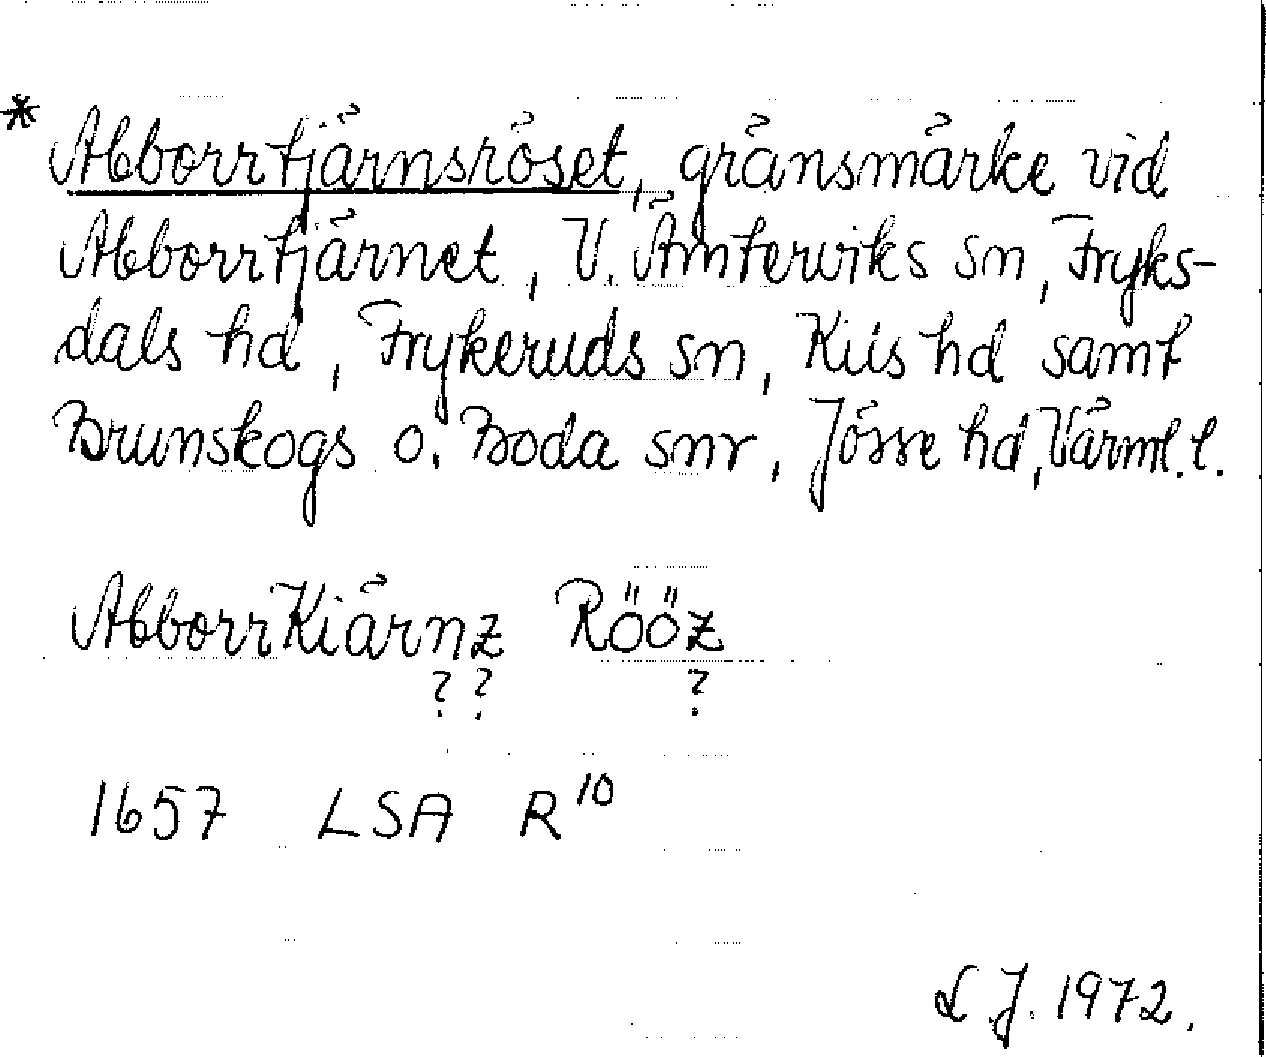 * Abborrtjärnsröset, gränsmärke vid
Abborrtjärnet, V. Ämterviks sn, Fryks-
dals hd, Frykeruds sn, Kils hd samt
Brunskogs o. Boda snr, Jösse hd, Värml. l.
AbborrKiärnz Rööz
? ? ?
1657 LSA R¹⁰
L J. 1972.